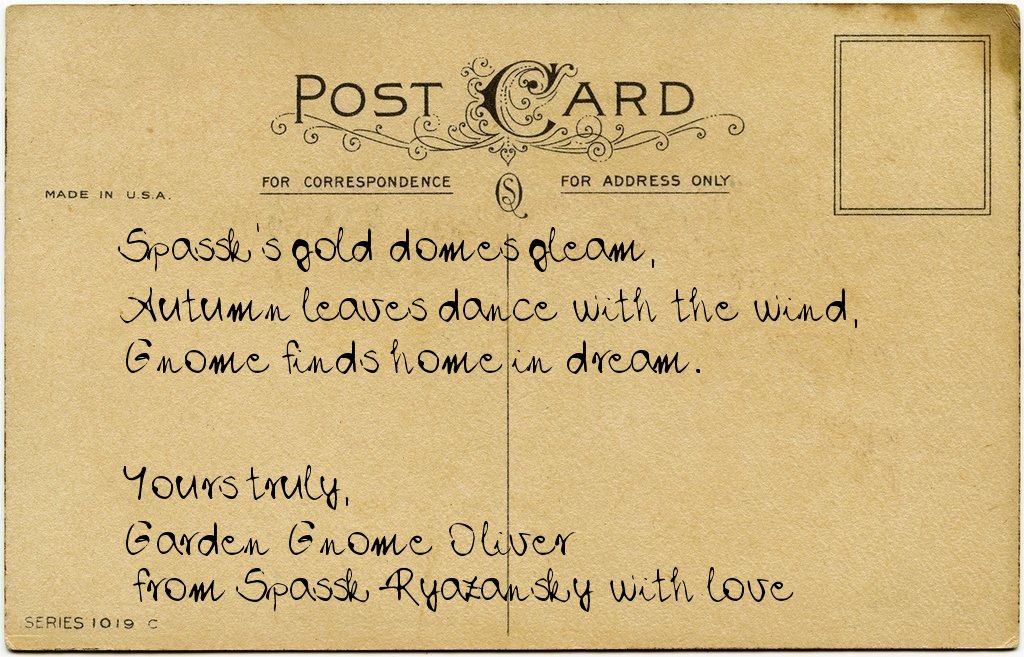 POST CARD
FOR CORRESPONDENCE
FOR ADDRESS ONLY
MADE IN U.S.A.
Spassk's gold domes gleam,
Autumn leaves dance with the wind,
Gnome finds home in dream.
Yours truly,
Garden Gnome Oliver
from Spassk-Ryazansky with love
SERIES 1019 C